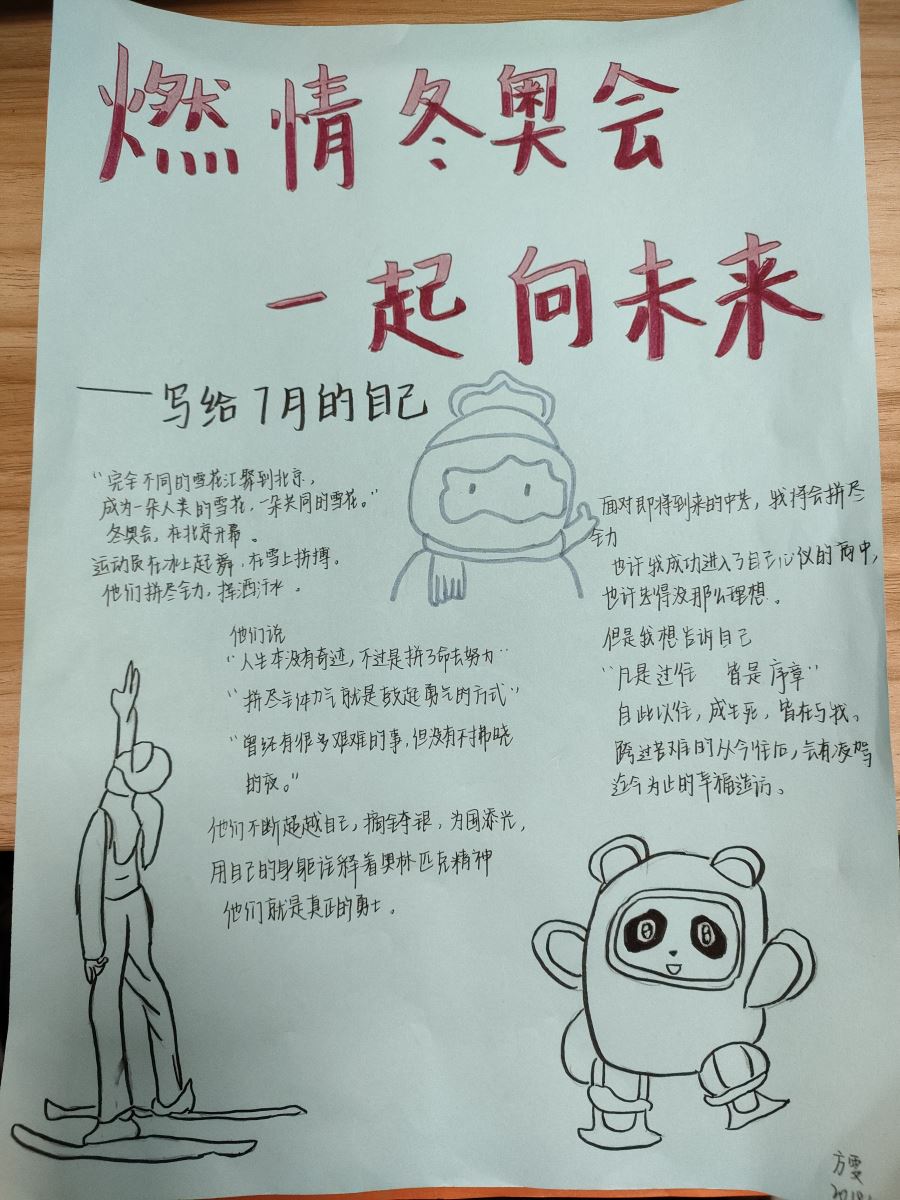 燃情冬奥会
一起向未来
——写给7月的自己
“完全不同的雪花汇聚到北京，
成为一朵人类的雪花，一朵共同的雪花。”
冬奥会，在北京开幕。
运动员在冰上起舞，在雪上拼搏。
他们拼尽全力，挥洒汗水。
他们说
“人生本没有奇迹，不过是拼了命去努力”
“拼尽全体力气就是鼓起勇气的方式”
“曾经有很多艰难的事，但没有不拂晓
的夜。”
他们不断超越自己，摘金夺银，为国添光，
用自己的身躯诠释着奥林匹克精神
他们就是真正的勇士。
面对即将到来的中考，我将会拼尽
全力
也许我成功进入了自己心仪的高中，
也许考得没那么理想。
但是我想告诉自己
“凡是过往 皆是序章”
自此以往，成生死，皆在与我。
跨过苦难的从今往后，会有凌驾
迄今为止的幸福造访。
方雯